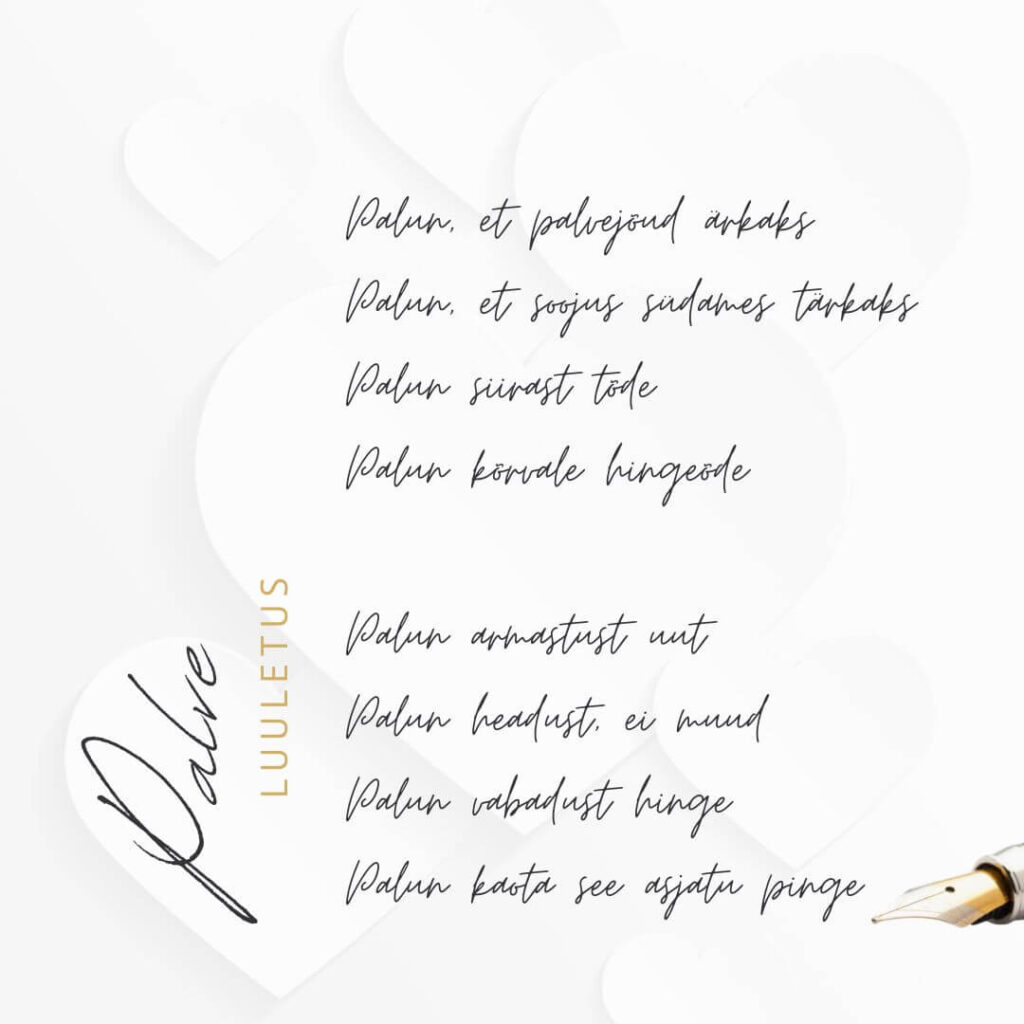 Palun, et palvejõud ärkaks
Palun, et soojus südames tärkaks
Palun siirast tõde
Palun kõrvale hingeõde
Palun armastust uut
Palun headust, ei muud
Palun vabadust hinge
Palun kaota see asjatu pinge
Palve
LUULETUS